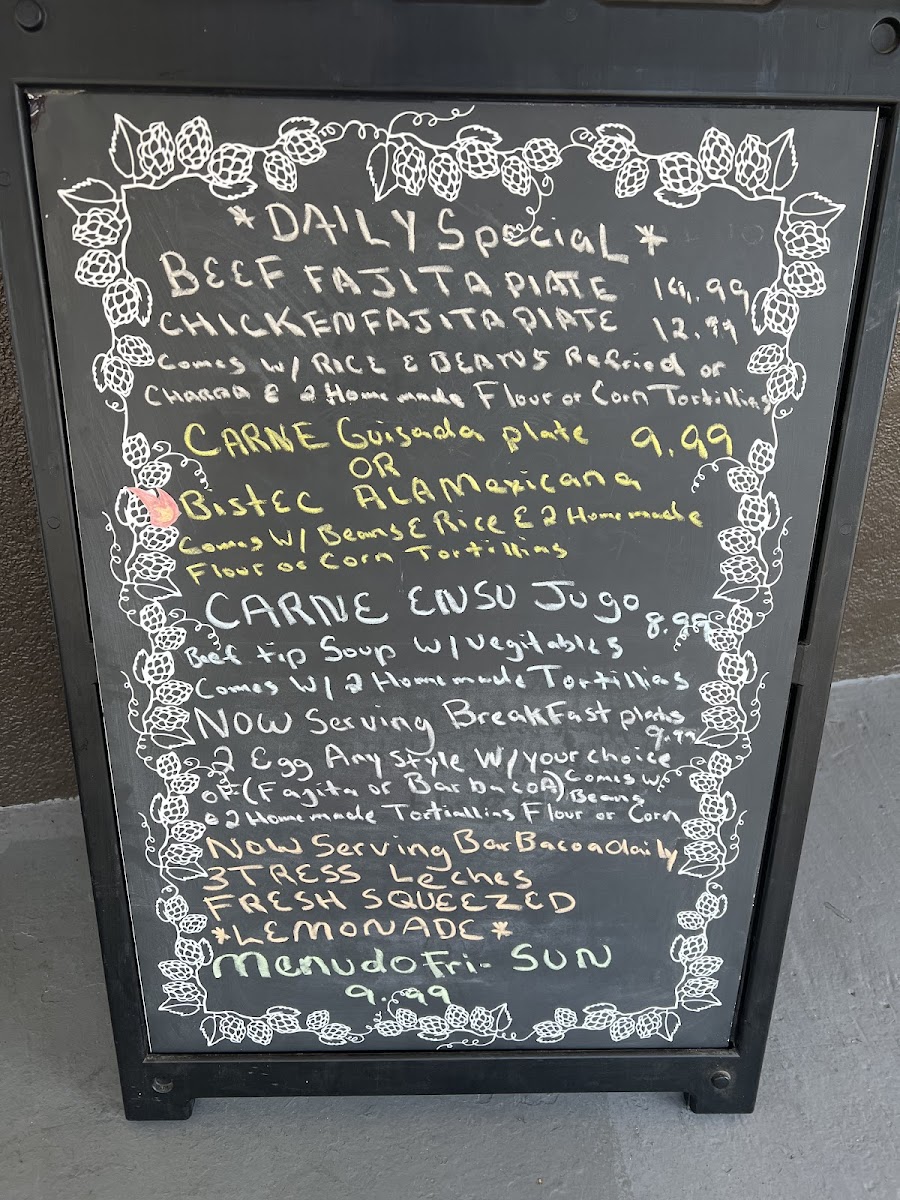 *DAILY Special*
BEEF FAJITA PLATE 14.99
CHICKEN FAJITA PLATE 12.99
Comes W/ RICE & BEANS Refried or
CHARRA & 2 Home made Flour or Corn Tortillias
CARNE Guisada plate 9.99
OR
BistEC ALA Mexicana
Comes W/ Beans & Rice & 2 Home made
Flour or Corn Tortillias
CARNE EN SU Jugo 8.99
Beef tip Soup W/ Vegitables
Comes W/ 2 Home made Tortillias
NOW Serving BreakFast plates
9.99
2 Egg Any style W/ your choice
OF (Fajita or BarbacoA) Comes W/
Beans
& 2 Home made Tortiallias Flour or Corn
NOW Serving BarBacoa daily
3TRESS Leches
FRESH SQUEEZED
*LEMONADE*
Menudo Fri- SUN
9.99